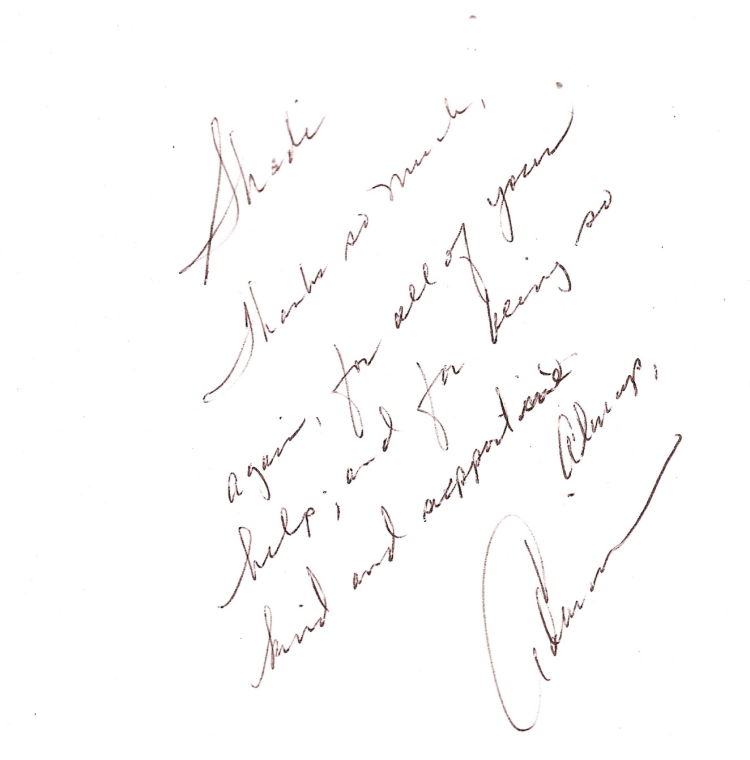 Shadi
Thanks so much,
again, for all of your
help, and for being so
kind and supportive
Always,